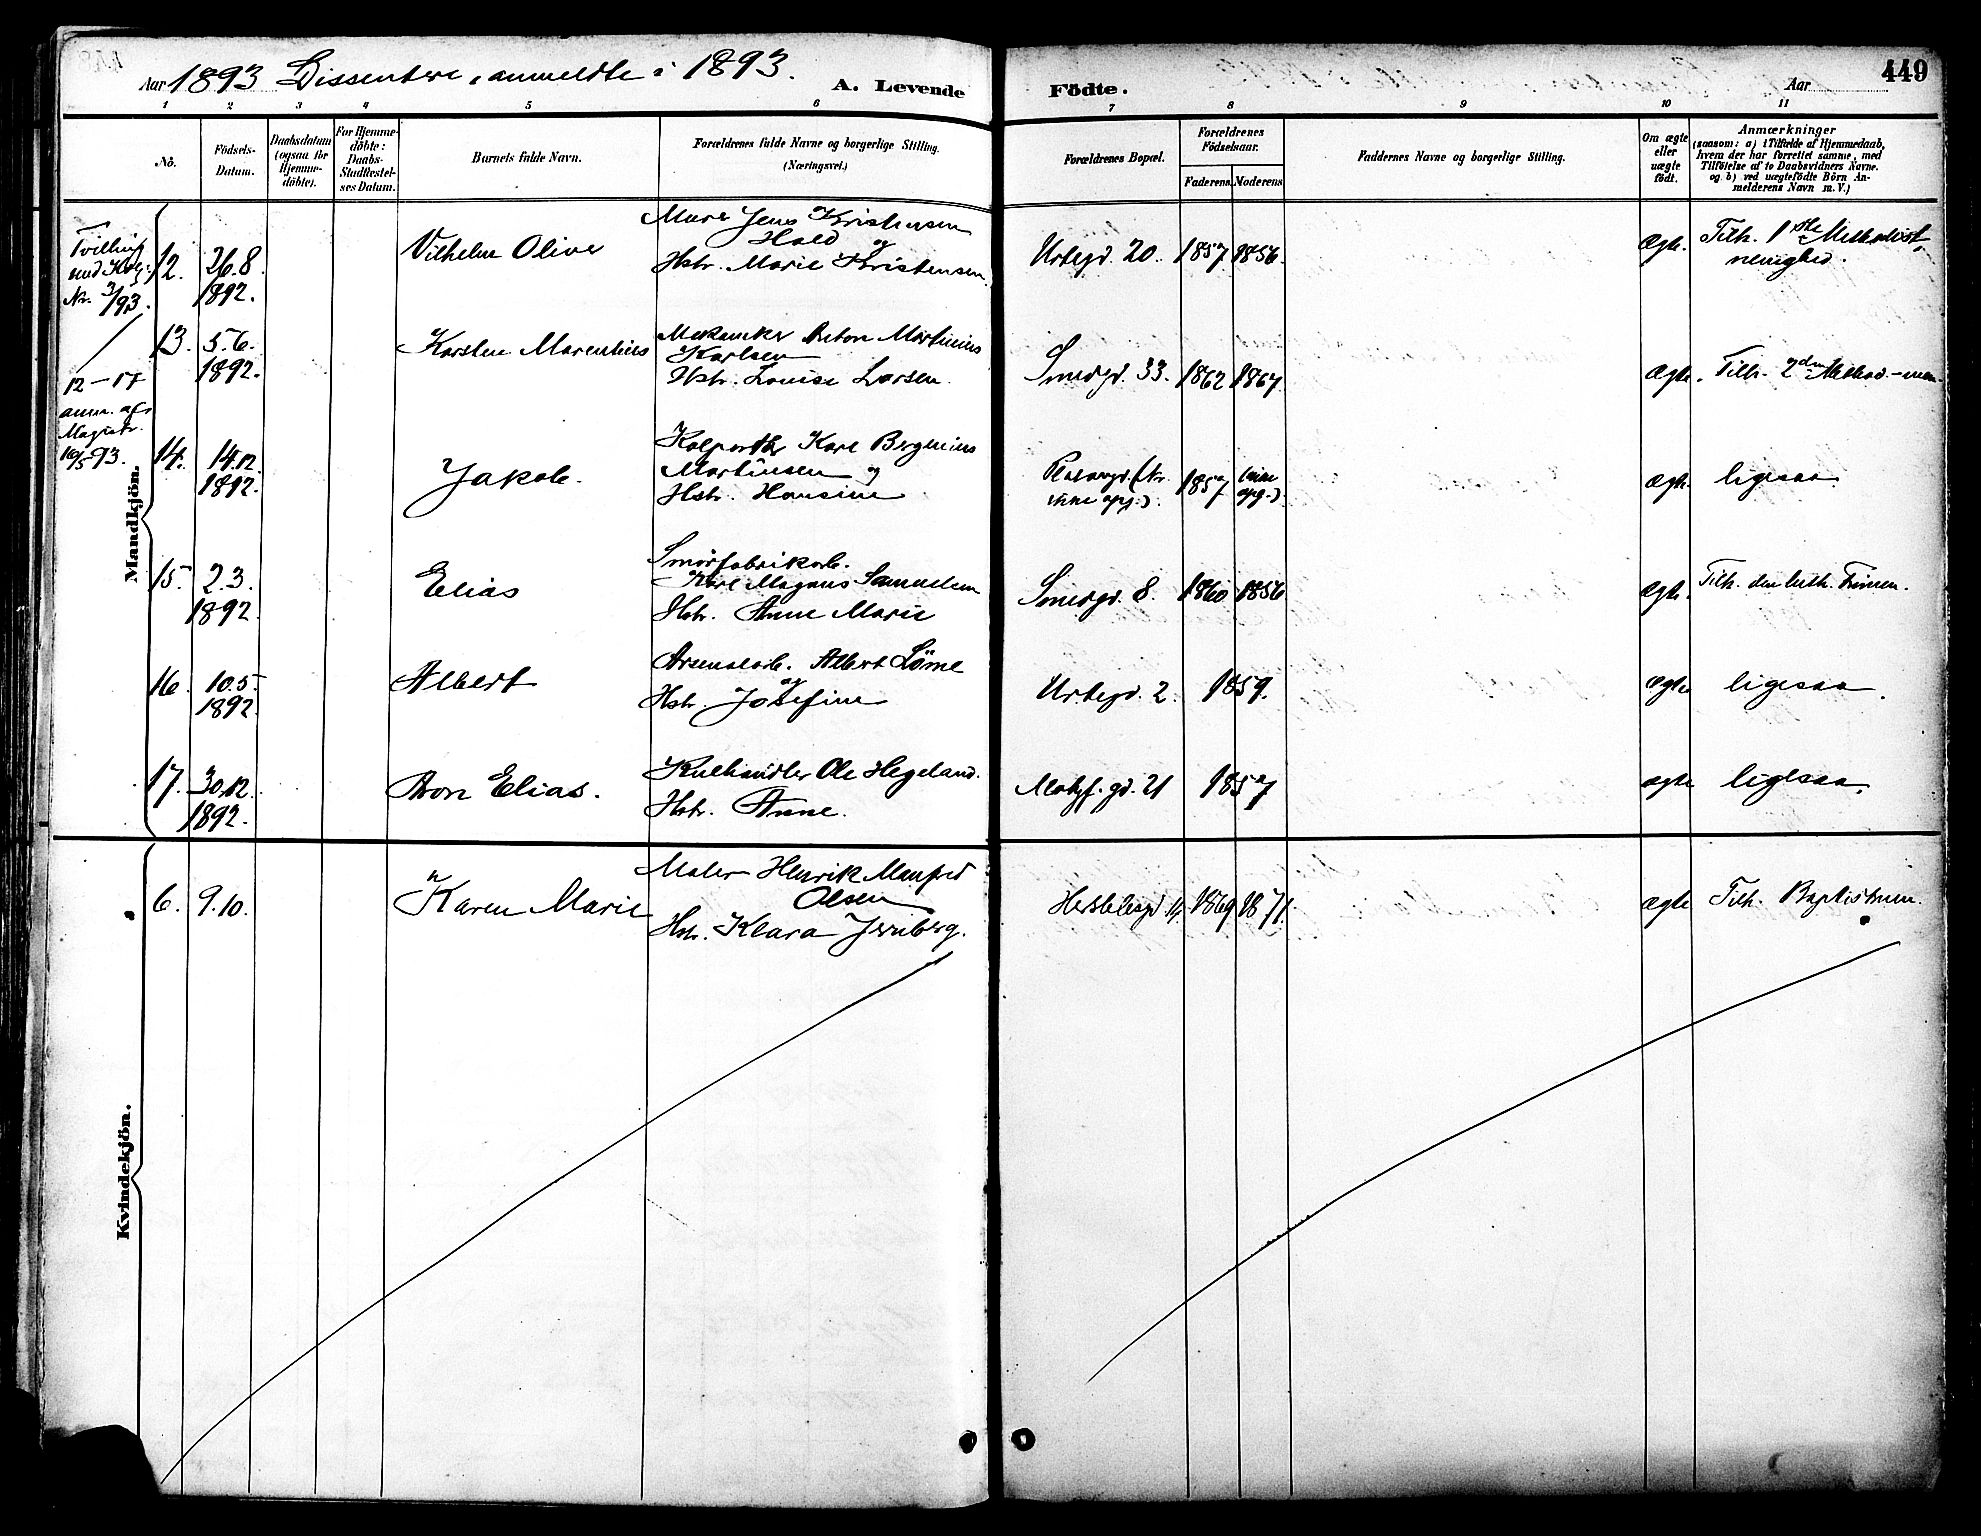 Aar 1893 Dissentere, anmeldte i 1893.
A. Levende
Födte.
Aar
449
1 2 3 4 5 6 7 8 9 10 11
No.
Födsels-Datum.
Daabsdatum (ogsaa for Hjemme-döbte).
For Hjemme-döbte: Daabs-Stadfæstel-ses Datum.
Barnets fulde Navn.
Forældrenes fulde Navne og borgerlige Stilling.
(Næringsvei.)
Forældrenes Bopæl.
Forældrenes Födselsaar.
Faderens. Moderens
Faddernes Navne og borgerlige Stilling.
Om ægte eller uægte födt.
Anmærkninger
(saasom: a) i Tilfælde af Hjemmedaab,
hvem der har forrettet samme, med
Tilföielse af to Daabsvidners Navne.
og b) ved uægtefödte Börn An-
melderens Navn m. V.)
Mandkjön.
Tvilling
med
Nr. 3/93.
12. 26.8. 1892. Vilhelm Oliver
Murer Jens Kristensen
Hald og
Hstr. Marie Kristensen
Urtegd. 20. 1857 1856. ægte. Tilh. 1ste Methodist-
menighed.
12-17
anm. af
Magistr.
16/5 93.
13. 5.6. 1892. Karsten Marentius
Mekaniker Anton Martinius
Karlsen
Hstr. Louise Larsen
Smedgd. 33. 1862 1867 ægte. Tilh. 2den Method.-men.
14. 14.12. 1892. Jakob.
Kolportør Karl Bergenius
Martinsen og
Hstr. Hansine
(Nr. ikke opg.). 1857 (ikke opg.) ægte. ligesaa
15. 2.3. 1892. Elias
Smørfabrikarb.
Karl Magnus Samuelsen
Hstr. Anne Marie
Smedgd. 8. 1860 1856 ægte. Tilh. den luth. Frimen.
16. 10.5. 1892. Albert
Arsenalarb. Albert
og
Hstr. Josefine
Urtegd. 2. 1859. ægte ligesaa.
17. 30.12. 1892. Aron Elias.
Kulhandler Ole Hegeland.
Hstr. Anne.
Motzf. gd. 21 1857 ægte ligesaa.
Kvindekjön.
6. 9.10. Karen Marie
Maler Henrik Manfred
Olsen
Hstr. Klara Jernberg.
1869 1871. ægte Tilh. Baptistmen.